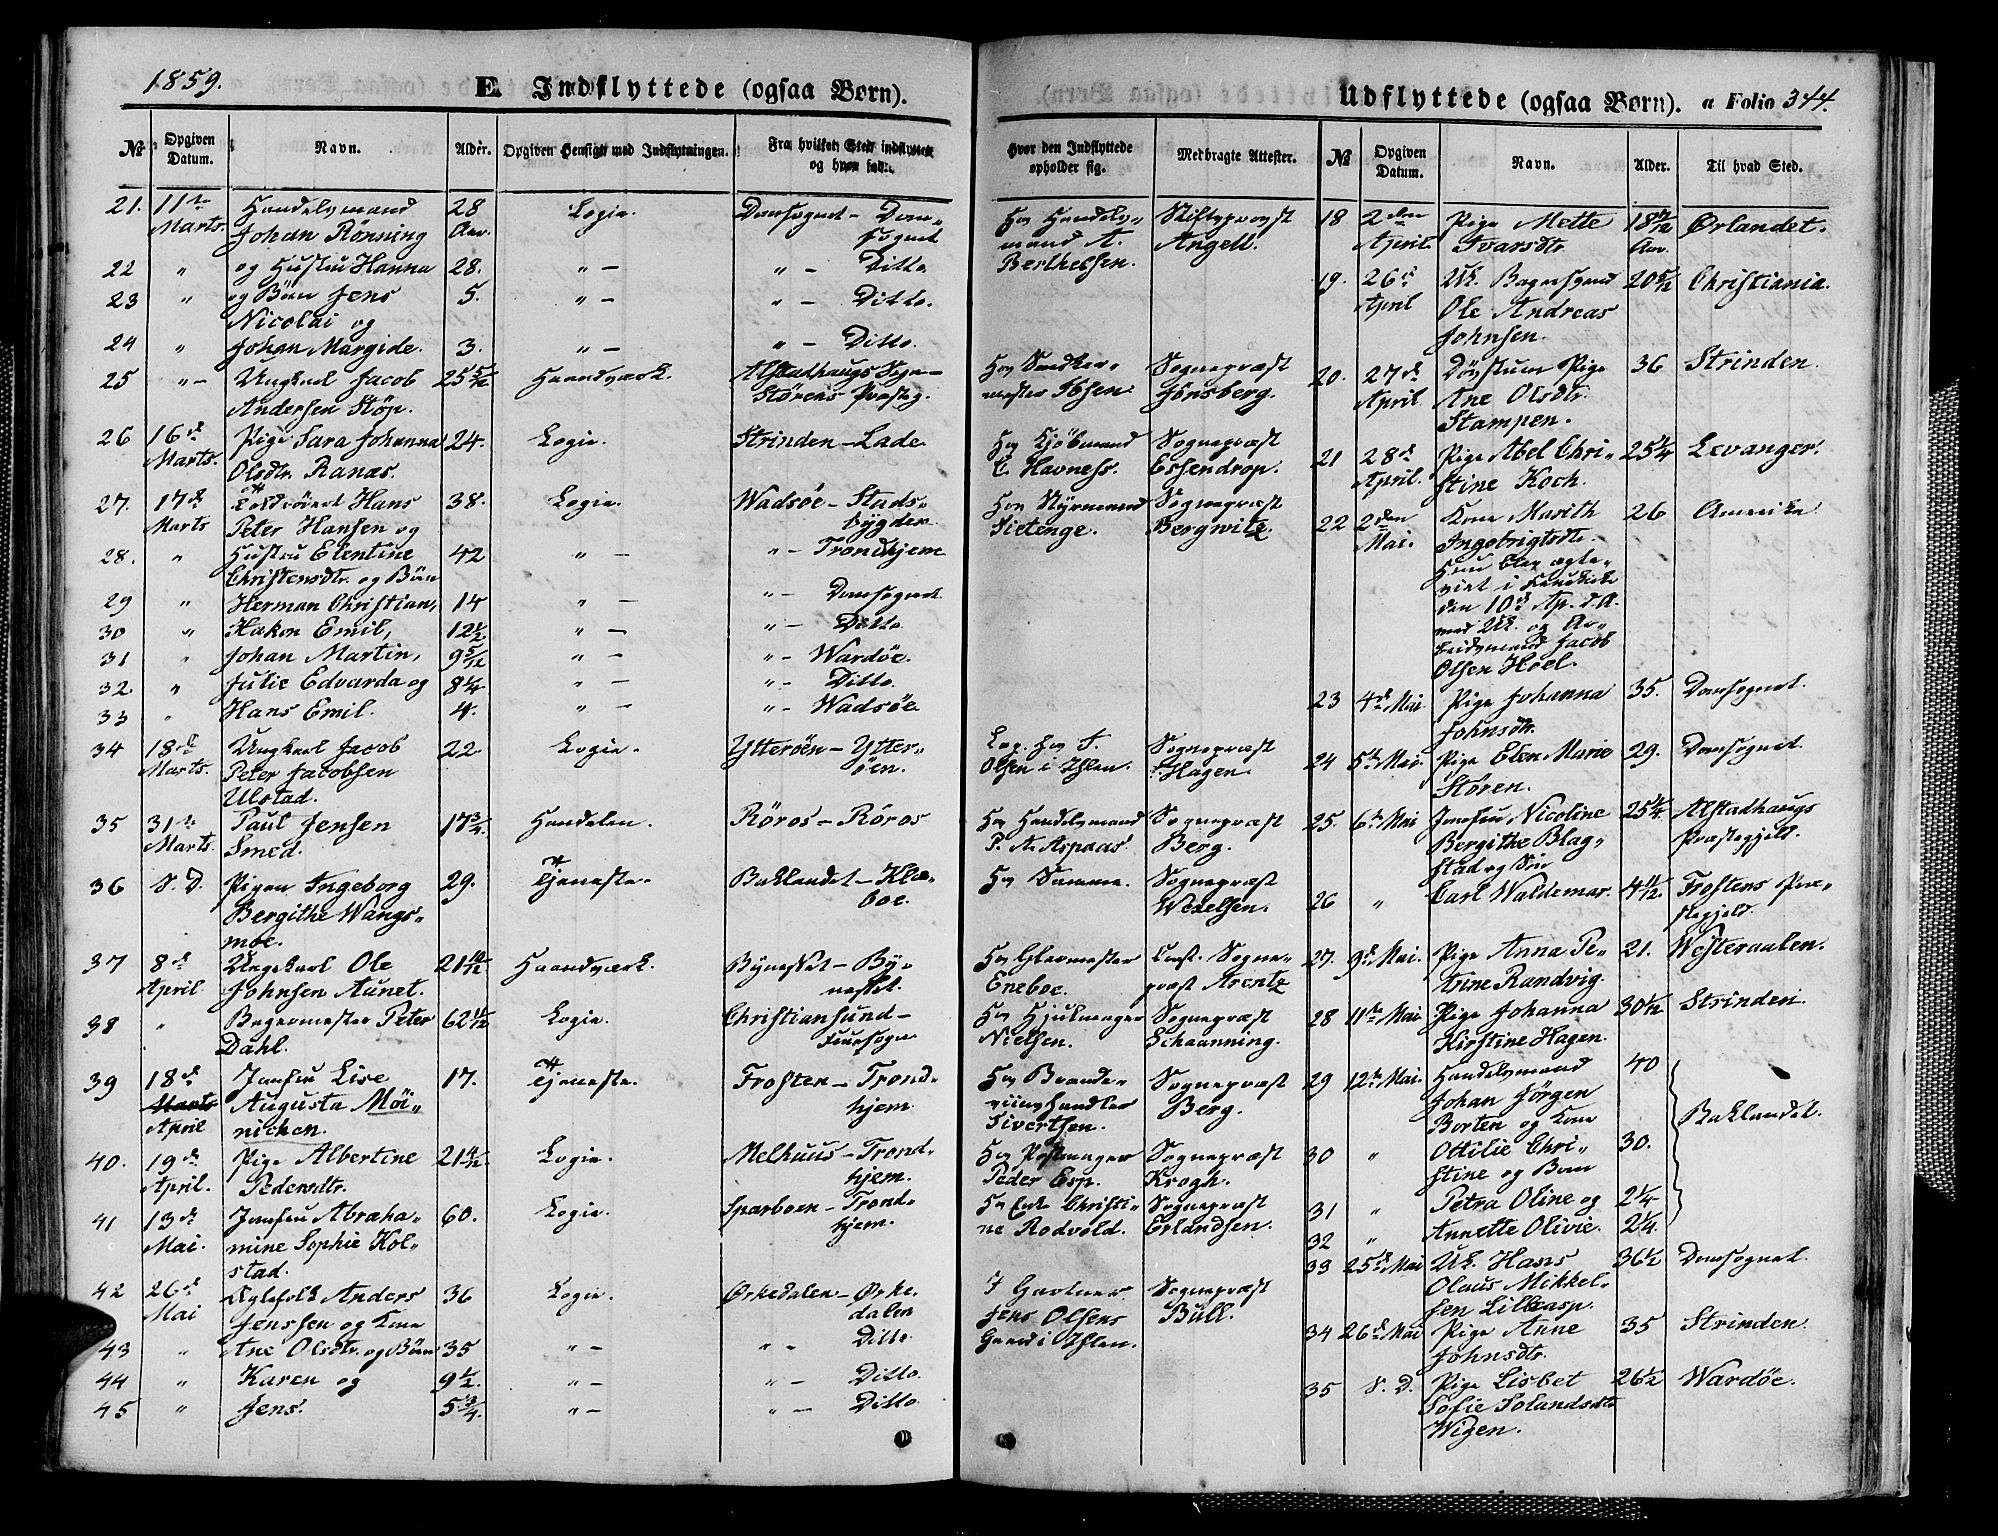 1859.
E. Indflyttede (ogsaa Børn).
Udflyttede (ogsaa Børn). a Folio 344.
№ Opgiven Datum. Navn. Alder. Opgiven Hensigt med Indflytningen. Fra hvilket Sted indflyttet og hvor født.
Hvor den Indflyttede opholder sig. Medbragte Attester. № Opgiven Datum. Navn. Alder. Til hvad Sted.
21. 11te Marts. Handelsmand Johan Rönning 28 Aar. Logie. Domsognet – Domsognet
Hos Handelsmand A. Berthelsen. Stiftsprovst Angell.
22 " og Hustru Hanna 28. " – " – Ditto
23 " og Börn Jens Nicolai og 5. " – " – Ditto.
24 " Johan Margide. 3. " – " – Ditto.
25 " – Ungkarl Jacob Andersen Stöp. 25 5/12 Haandværk. Alstadhaugs Sogn – Störens Præsteg.
Sognepræst Jönsberg.
26 16de Marts. Pige Sara Johanna Olsdtr. Ranæs. 24. Logie. Strinden – Lade.
Hos Kjöbmand C. Havness. Sognepræst Essendrop.
27. 17de Marts Hans Peter Hansen og 38. Logie. Wadsöe – Stadsbygden.
Hos Styrmand Sietenge. Sognepræst Bergwitz.
28. " Hustru Elentine Christensdtr. og Börn 42 " – " – Trondhjem
29 " Herman Christian, 14 " – " – Domsognet
30 " Hakon Emil, 12 1/2 " – " – Ditto
31 " Johan Martin, 9 5/12 " – " – Wardöe.
32. " Julie Edvarda og 8 1/4 " – " – Ditto.
33 " Hans Emil. 4. " – " – Wadsöe.
34 18de Marts. Ungkarl Jacob Peter Jacobsen Ulstad. 22 Logie. Ytteröen – Ytteröen.
Log. hos T. Olsen i Ihlen. Sognepræst Hagen.
35 31te Marts. Paul Jensen Smed. 17 3/4. Handelen. Röros – Röros
Hos Handelsmand P. A. Aspaas. Sognepræst Berg.
36 S. D. Pigen Ingeborg Bergithe Wangsmoe. 29. Tjeneste. Baklandet – Klæboe.
Hos Samme. Sognepræst Wexelsen.
37 8de April. Ungekarl Ole Johnsen Aunet. 21 10/12 Haandværk. Bynesset – Bynesset.
Hos Glarmester Eneboe. Const. Sognepræst Arentz
38 " Bagermester Peter Dahl. 62 11/12 Logie. Christiansund –
Hos Hjulmager Nielsen. Sognepræst Schaanning.
39 18de Marts April Jomfru Lise Augusta Möinichen. 17. Tjeneste. Frosten – Trondhjem.
Hos Brændeviinshandler Sivertsen. Sognepræst Berg.
40. 19de April. Pige Albertine Pedersdtr. 21 4/12 Logie. Melhuus – Trondhjem.
Peder Esp. Sognepræst Krogh.
41 13de Mai. Jomfru Abrahamine Sophie Kolstad. 60. Logie. Sparboen – Trondhjem.
Hos Enk. Christine Rodvold. Sognepræst Erlandsen.
42 26de Mai Egtefolk Anders Jenssen og Kone 36 Logie. Ørkedalen – Ørkedalen
I Gartner Jens Olsens Gaard i Ihlen. Sognepræst Büll.
43 " Ane Olsdtr. og Börn 35 " – " – Ditto
44 " Karen og 9 1/2. " – " – Ditto.
45 " Jens. 5 3/4. " – " – Ditto
18 2den April Pige Mette Ivarsdtr. Aar. Ørlandet.
19. 26de April Uk. Bagersvend Ole Andreas Johnsen. 20 5/12 Christiania.
20. 27de April Dövstum Pige Ane Olsdtr. Stampen. 36 Strinden.
21 28de April. Pige Abel Christine Koch. 25 1/4 Levanger.
22 2den Mai. Kone Marith Ingebrigtsdtr. Hun blev ægteviet i den 10de Ap. d. A. med Uk. og Arbeidsmand Jacob Olsen Hoel. 26 Amerika
23 4de Mai Pige Johanna Johnsdtr. 35. Domsognet.
24 5te Mai. Pige Elen Marie Stören. 29. Domsognet.
25. 6te Mai Jomfru Nicoline Bergithe Blagstad og Sön 25 1/4. Alstadhaugs Præstegjeld.
26 " Carl Waldemar. 4 11/12. Frostens Præstegjeld.
27. 9de Mai. Pige Anna Petrine Randvig. 21. Westeraalen.
28 11te Mai Pige Johanna Kirstine Hagen. 30 1/2 Strinden.
29 12te Mai. Handelsmand Johan Jörgen Borten og Kone 40 Baklandet.
30 " Ottilie Christine og Børn 30.
31 " Petra Oline og 2 1/4
32 " Annette Olivie. 2 1/4.
33 25de Mai Uk. Hans Olaus Mikkelsen Lilleasp. 36 1/2 Domsognet.
34 26de Mai Pige Anne Johnsdtr. 35 Strinden.
35 S. D. Pige Lisbet Sofie Wigen. 26 1/2 Wardöe.